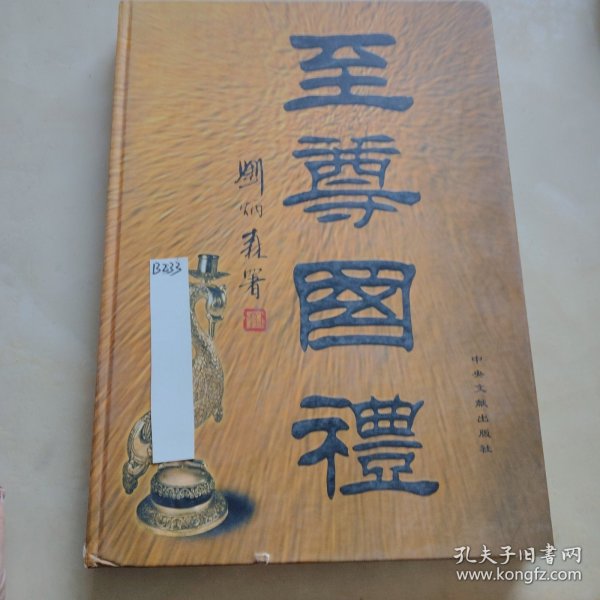 至尊國禮
劉炳森署
B233
中央文献出版社
孔夫子旧书网
www.kongfz.com